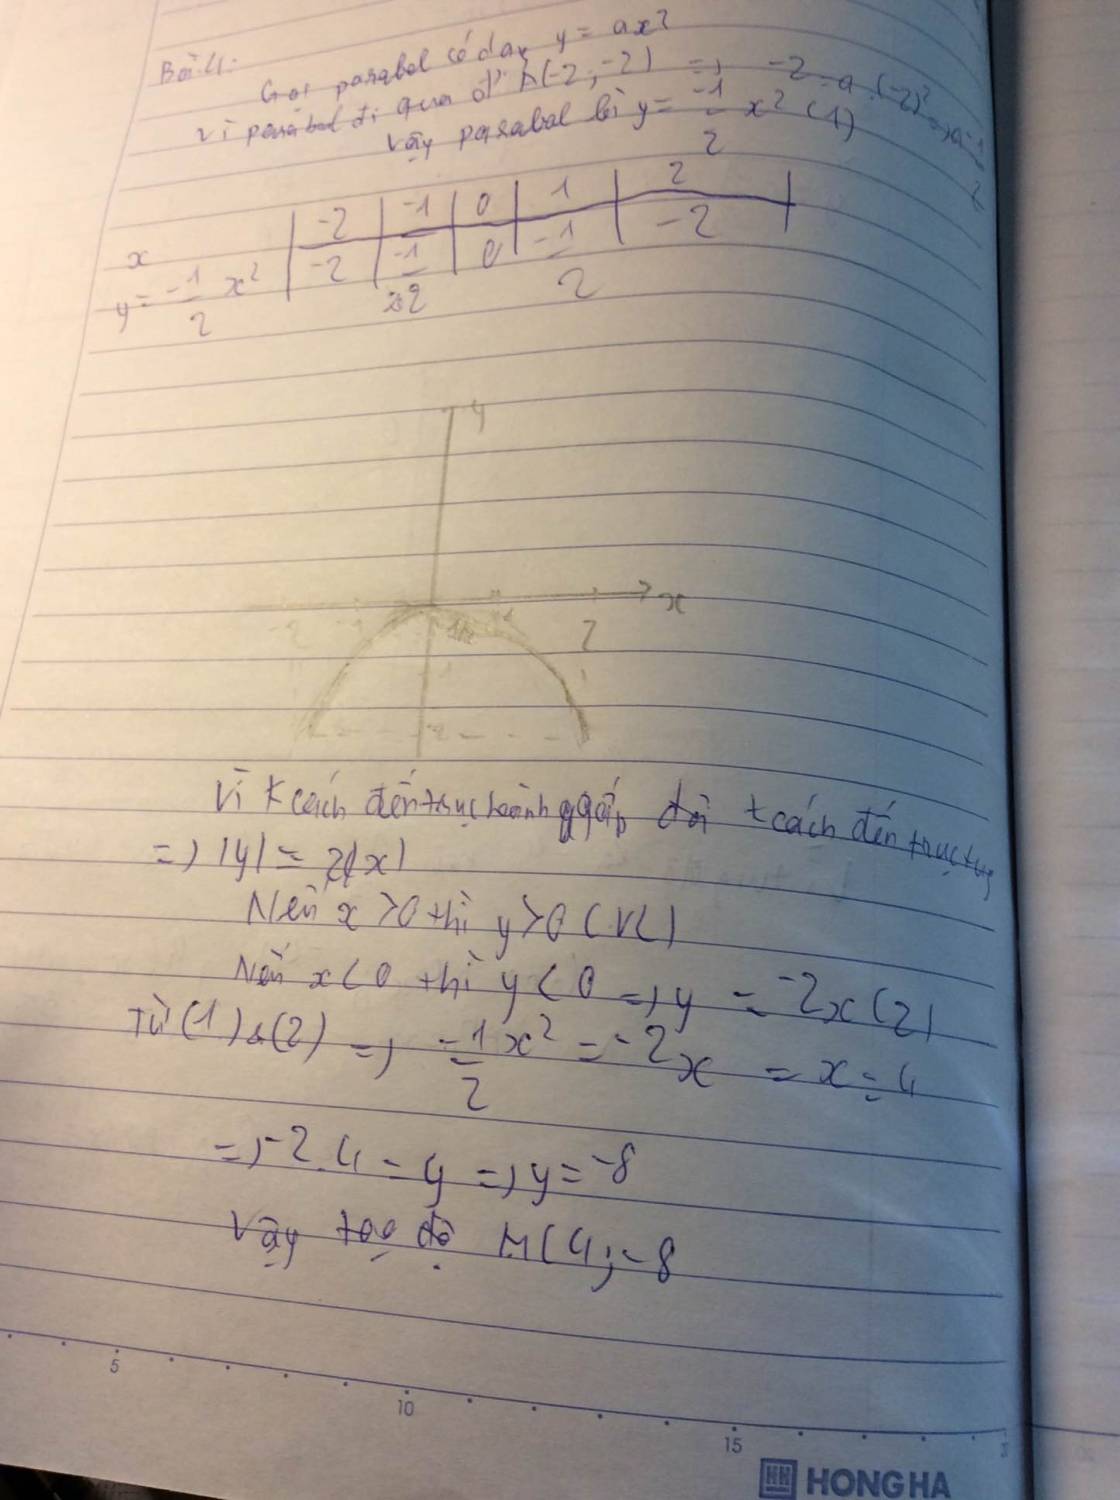 Bài 4:
Gọi parabol có dạng y = ax²
Vì parabol đi qua đ' A(-2; -2) => -2 = a.(-2)² => a = -1/2
Vậy parabol là y = -1/2 x² (1)
x | -2 | -1 | 0 | 1 | 2
y = -1/2 x² | -2 | -1/2 | 0 | -1/2 | -2
y
x
-2 -1 1 2
-2
Vì k cách đến trục hoành gấp đôi k cách đến trục tung
=> |y| = 2|x|
Nếu x > 0 thì y > 0 (VL)
Nếu x < 0 thì y < 0 => y = -2x (2)
Từ (1) & (2) => -1/2 x² = -2x = x = 4
=> -2.4 = y => y = -8
Vậy toạ độ M(4; -8
5 10 15
HH HONG HA